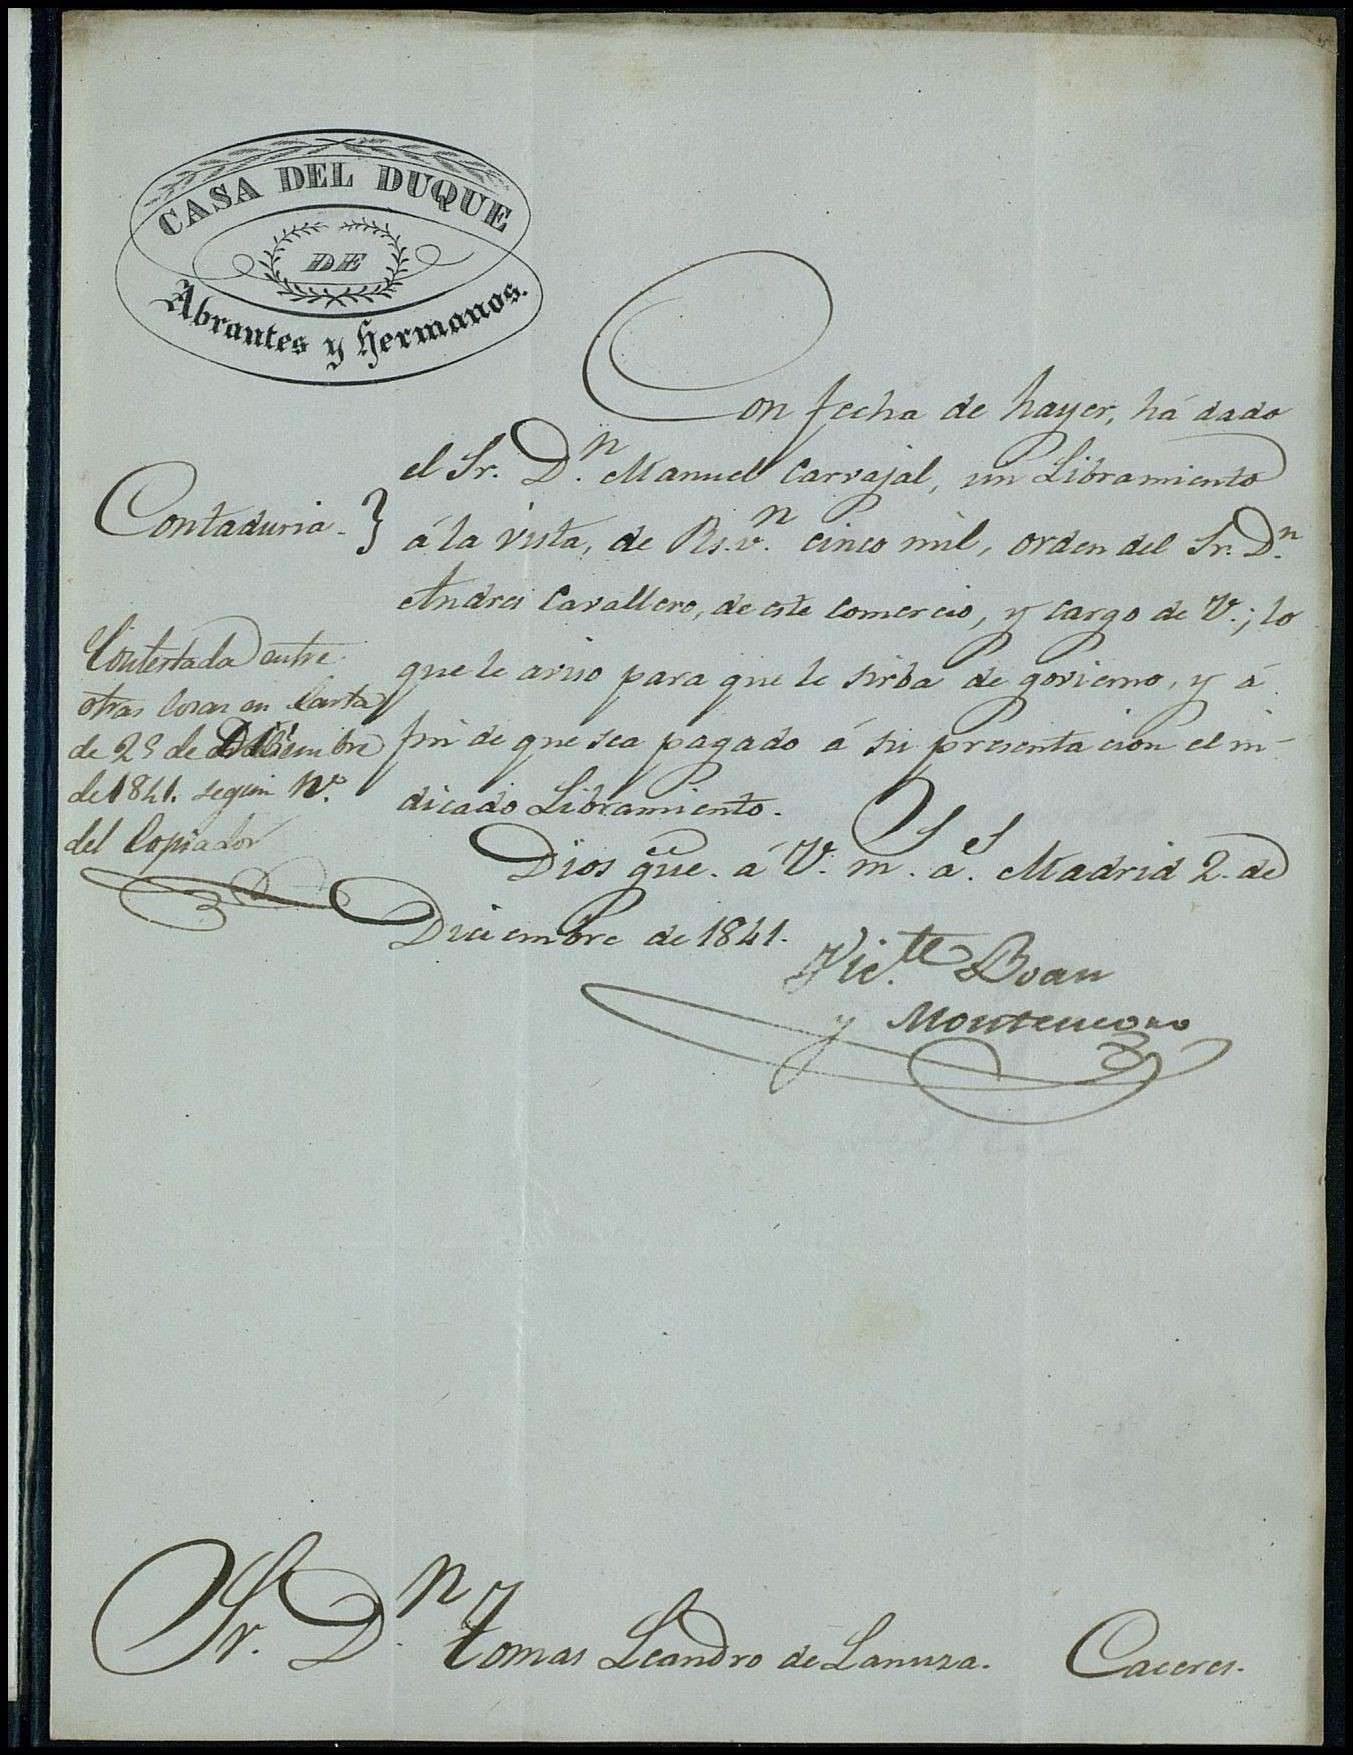 CASA DEL DUQUE
DE
Abrantes y Hermanos.
Contaduria.
Con fecha de hayer, há dado
el Sr. Dn. Manuel Carvajal, un Libramiento
á la vista, de Rs. vn. cinco mil, orden del Sr. Dn.
Andres Cavallero, de este Comercio, y cargo de V.; lo
que le aviso para que le sirba de govierno, y á
fin de que sea pagado á su presentacion el in-
dicado Libramiento.
Dios gue. á V. ms. as. Madrid 2. de
Diciembre de 1841.
Victe. Boan
y Montenegro
Contestada entre
otras cosas en Carta
de 25 de Diciembre
de 1841. segun No.
del Copiador
Sr. Dn. Tomas Leandro de Lanuza. Caceres.